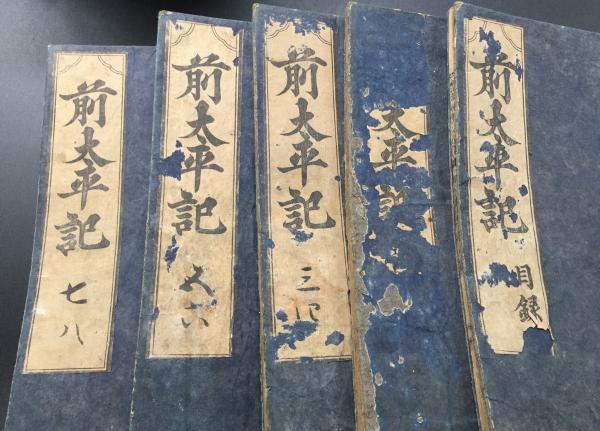 前太平記 目録
太平記
前太平記 三四
前太平記 五六
前太平記 七八